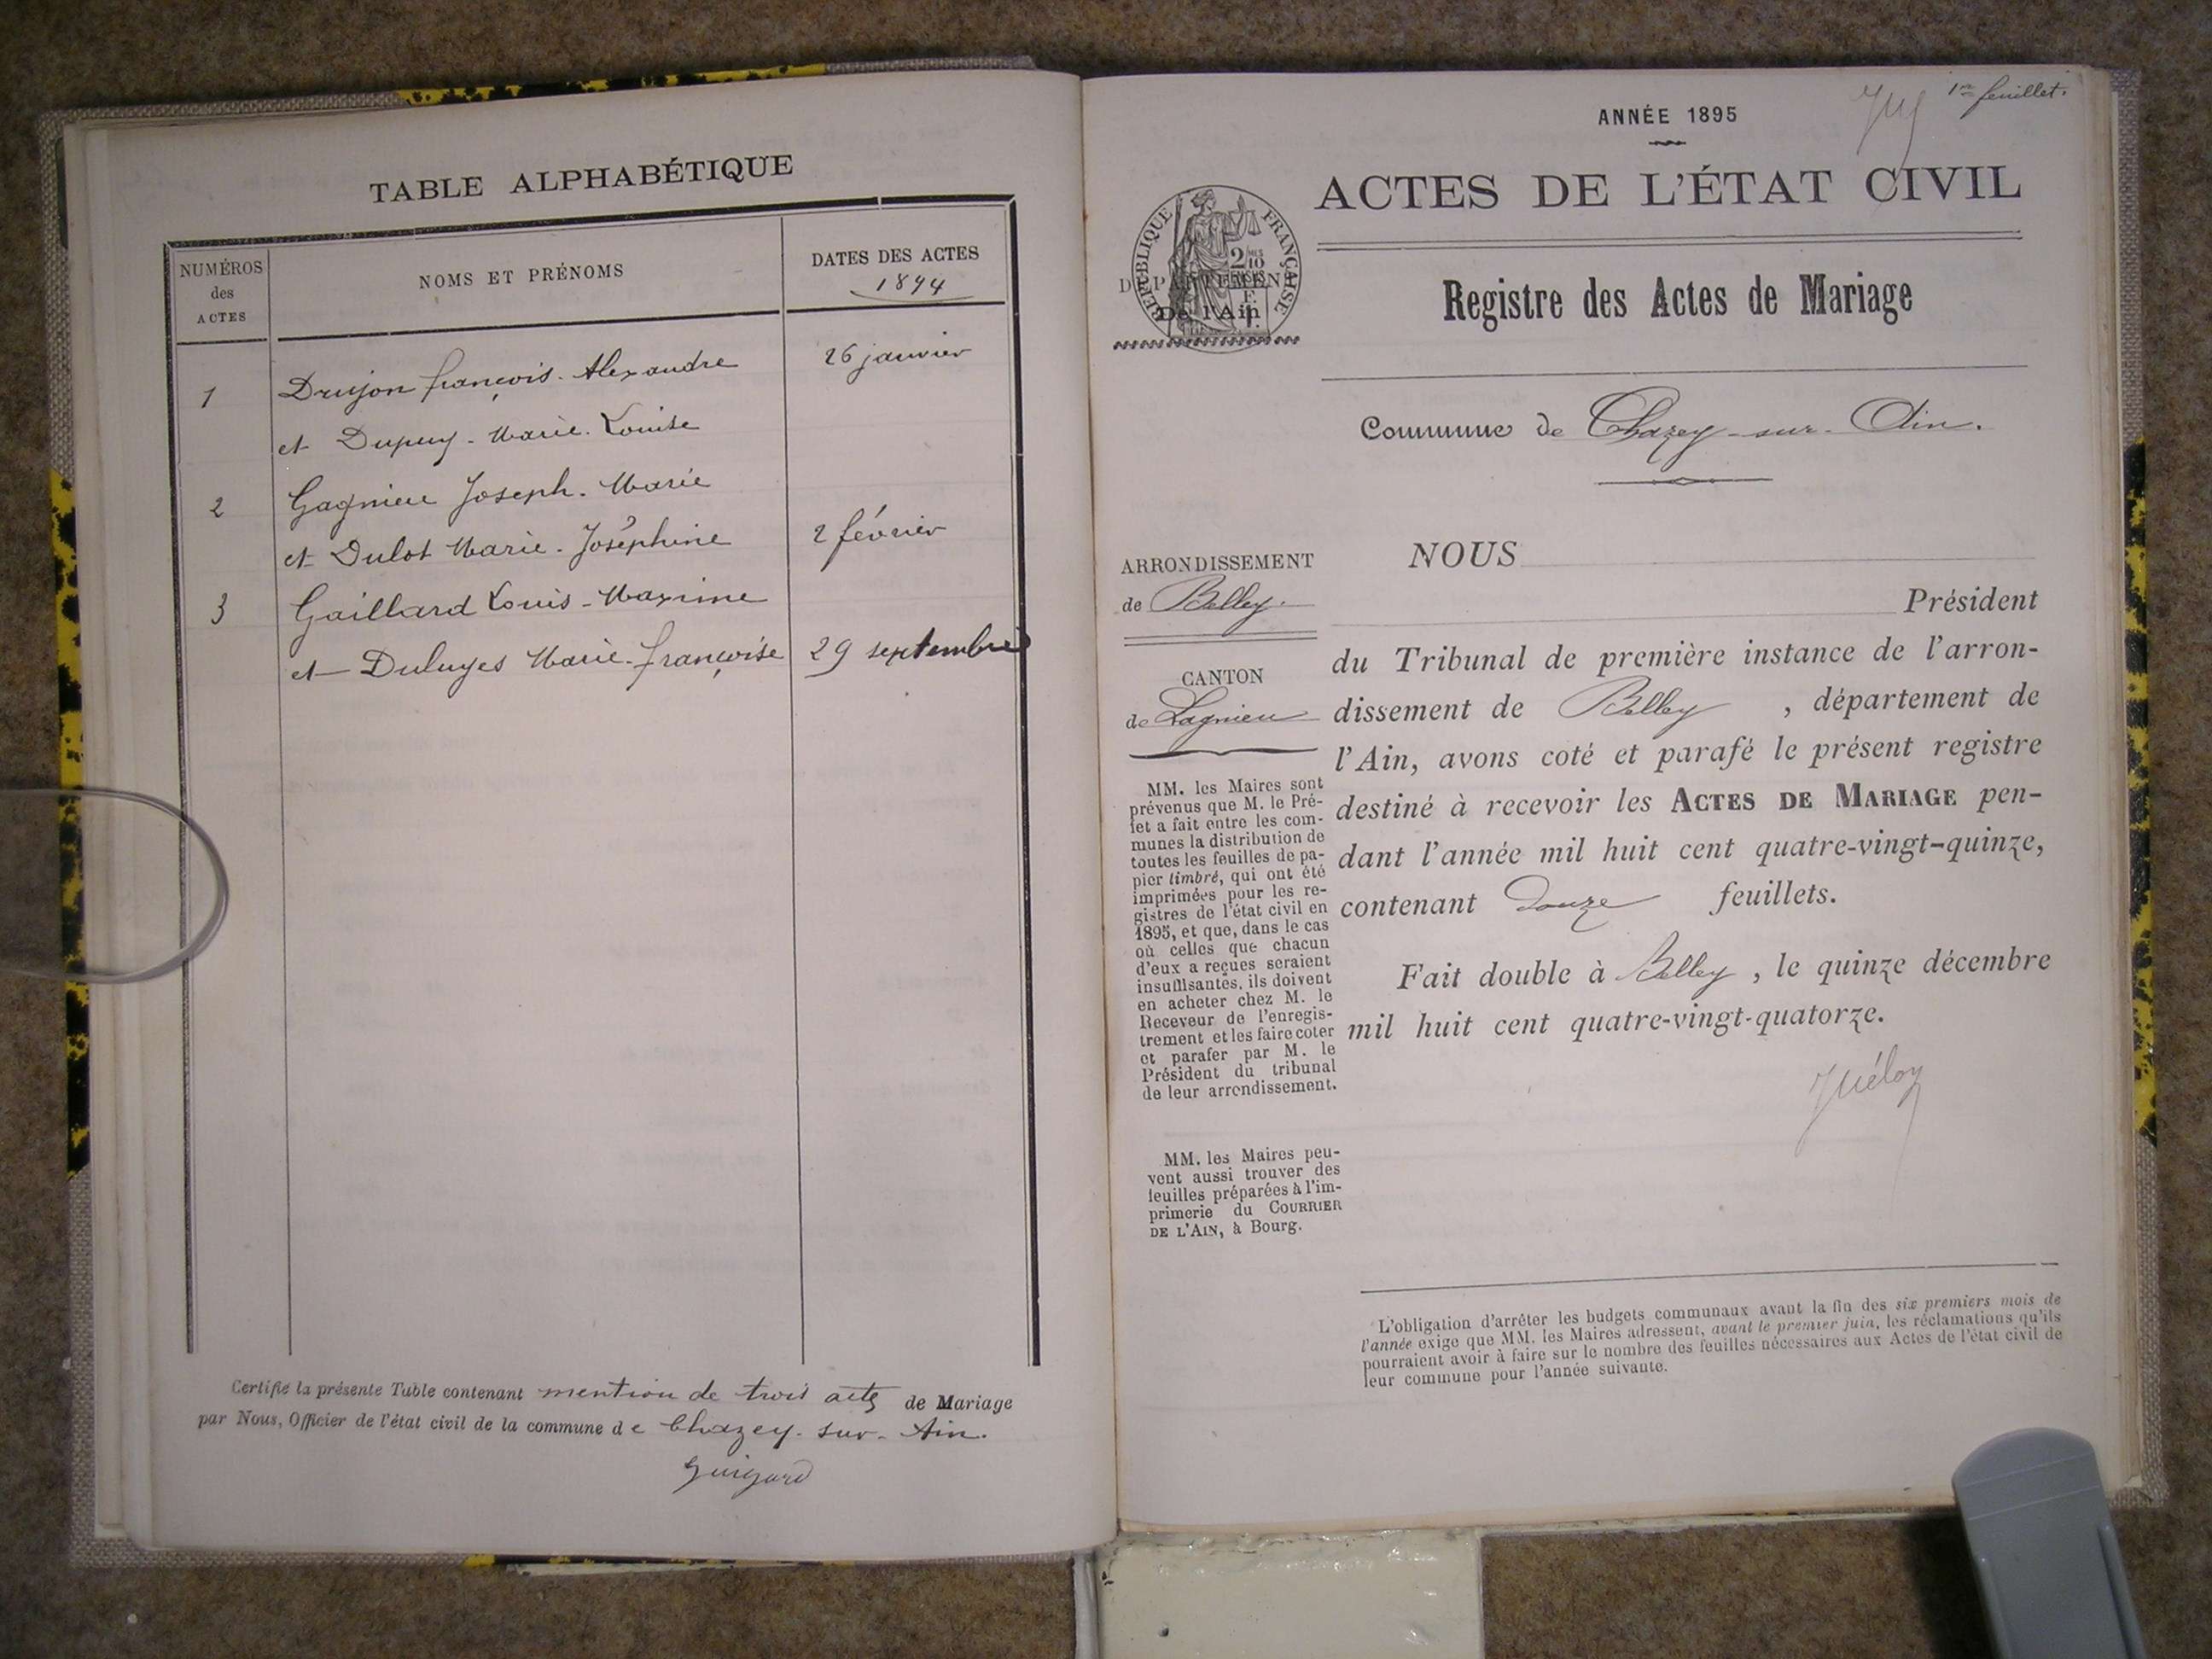 TABLE ALPHABÉTIQUE
NUMÉROS
des
ACTES
NOMS ET PRÉNOMS
DATES DES ACTES
1894
1 Drujon françois. Alexandre 26 janvier
et Dupuy - Marie. Louise
2 Gagnieu Joseph. Marie
et Dulot Marie. Joséphine 2 février
3 Gaillard Louis - Maxime
et Duluyes Marie. françoise 29 septembre
Certifié la présente Table contenant mention de trois actes de Mariage
par Nous, Officier de l'état civil de la commune de Chazey. sur. Ain.
Guigard
1er feuillet.
ANNÉE 1895
ACTES DE L'ÉTAT CIVIL
RÉPUBLIQUE FRANÇAISE
DÉPARTEMENT
De l'Ain
Registre des Actes de Mariage
Commune de Chazey-sur-Ain.
ARRONDISSEMENT
de Belley.
CANTON
de Lagnieu
MM. les Maires sont
prévenus que M. le Pré-
fet a fait entre les com-
munes la distribution de
toutes les feuilles de pa-
pier timbré, qui ont été
imprimées pour les re-
gistres de l'état civil en
1895, et que, dans le cas
où celles que chacun
d'eux a reçues seraient
insuffisantes, ils doivent
en acheter chez M. le
Receveur de l'enregis-
trement et les faire coter
et parafer par M. le
Président du tribunal
de leur arrondissement.
MM. les Maires peu-
vent aussi trouver des
feuilles préparées à l'im-
primerie du COURRIER
DE L'AIN, à Bourg.
NOUS
Président
du Tribunal de première instance de l'arron-
dissement de Belley , département de
l'Ain, avons coté et parafé le présent registre
destiné à recevoir les ACTES DE MARIAGE pen-
dant l'année mil huit cent quatre-vingt-quinze,
contenant douze feuillets.
Fait double à Belley , le quinze décembre
mil huit cent quatre-vingt-quatorze.
L'obligation d'arrêter les budgets communaux avant la fin des six premiers mois de
l'année exige que MM. les Maires adressent, avant le premier juin, les réclamations qu'ils
pourraient avoir à faire sur le nombre des feuilles nécessaires aux Actes de l'état civil de
leur commune pour l'année suivante.